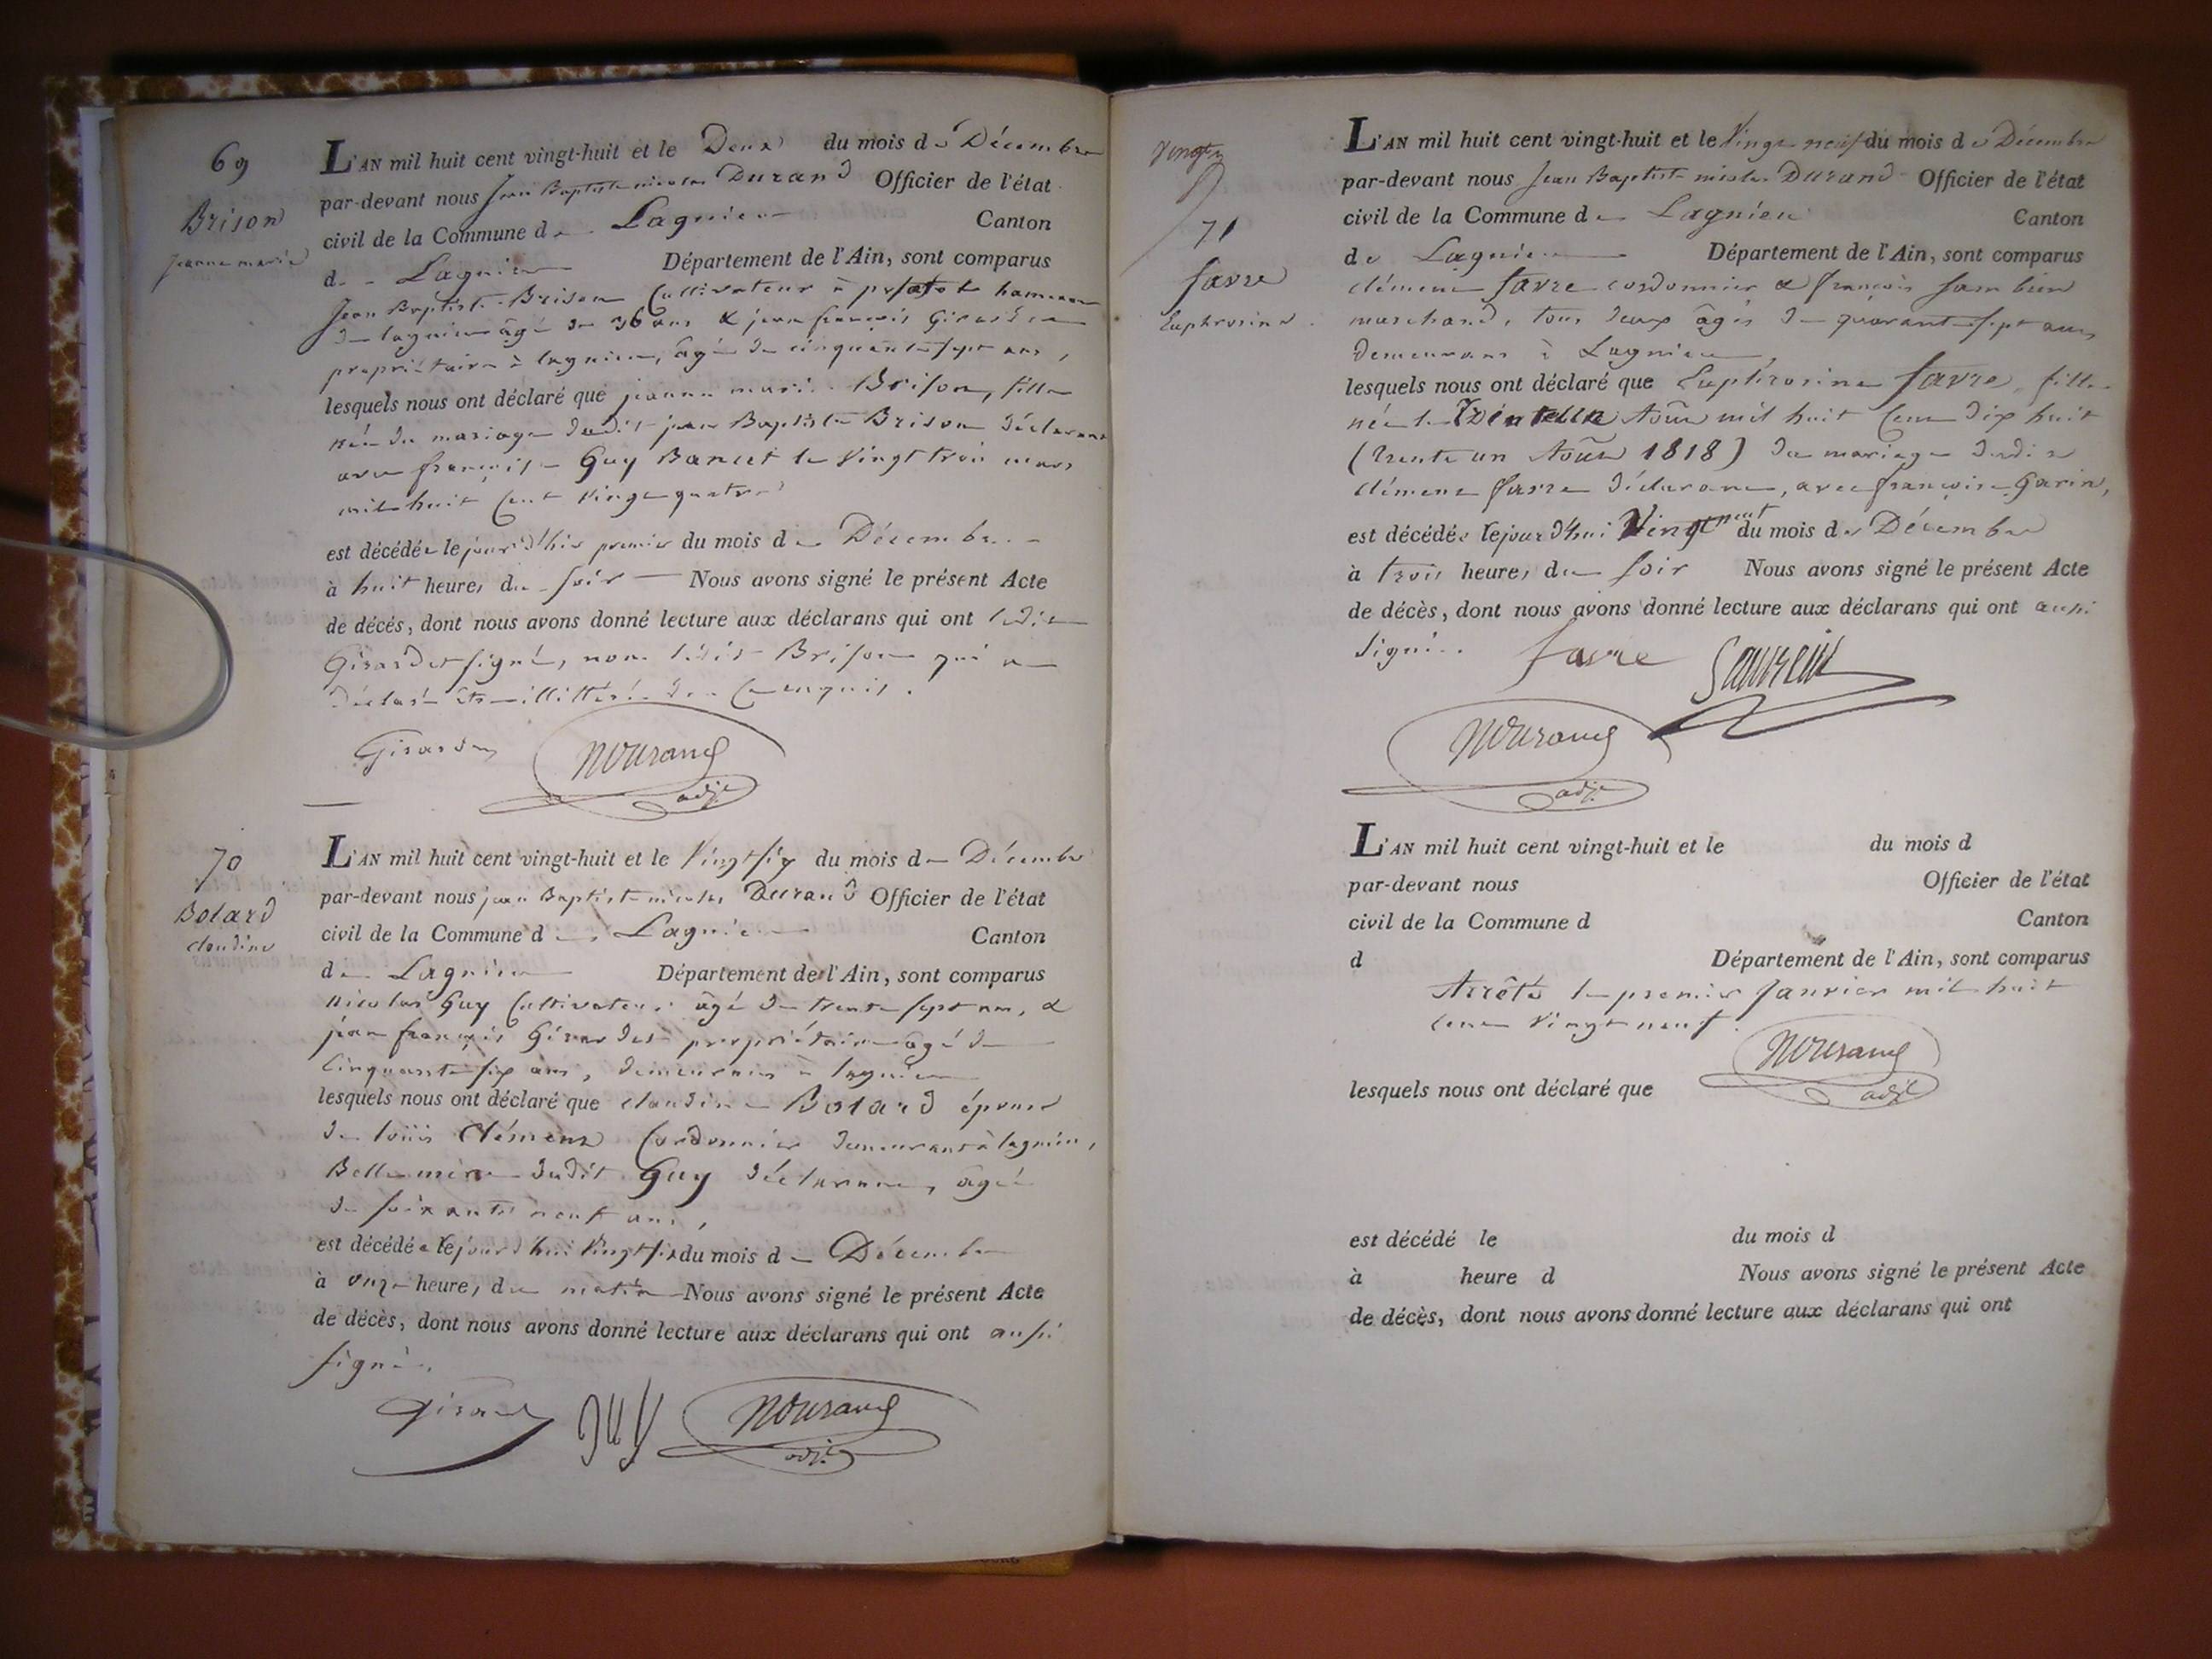 69
Brison
jeanne marie
L'AN mil huit cent vingt-huit et le Deux du mois de Décembre
par-devant nous Jean Baptiste nicolas Durand Officier de l'état
civil de la Commune de Lagnieu Canton
de Lagnieu Département de l'Ain, sont comparus
Jean Baptiste Brison Cultivateur à hameau
de lagnieu âgé de 36 ans & jean françois Girardet
propriétaire à lagnieu, âgé de cinquante sept ans,
lesquels nous ont déclaré que jeanne marie Brison, fille
née du mariage dudit jean Baptiste Brison déclarant
avec françoise Guy Bancet le Vingt trois mars
mil huit Cent Vingt quatre
est décédée le jour d'hier premier du mois de Décembre
à huit heures du soir Nous avons signé le présent Acte
de décés, dont nous avons donné lecture aux déclarans qui ont ledit
Girardet signé, non ledit Brison qui a
déclaré être illittéré de ce enquis.
Girardet NDurand
adjt
70
Botard
claudine
L'AN mil huit cent vingt-huit et le Vingt six du mois de Décembre
par-devant nous jean Baptiste nicolas Durand Officier de l'état
civil de la Commune de Lagnieu Canton
de Lagnieu Département de l'Ain, sont comparus
nicolas Guy Cultivateur âgé de trente sept ans, &
jean françois Girardet propriétaire agé de
Cinquante six ans, demeurans à lagnieu
lesquels nous ont déclaré que claudine Botard épouse
de louis Clément Cordonnier demeurant à lagnieu,
Belle mère dudit Guy déclarant, agée
de soixante neuf ans,
est décédée le jour d'hui Vingt six du mois de Décembre
à onze heures du matin Nous avons signé le présent Acte
de décès, dont nous avons donné lecture aux déclarans qui ont aussi
signé.
Girardet guy NDurand
adjt
Vingt
71
favre
Euphrosine
L'AN mil huit cent vingt-huit et le Vingt neuf du mois de Décembre
par-devant nous Jean Baptiste nicolas Durand Officier de l'état
civil de la Commune de Lagnieu Canton
de Lagnieu Département de l'Ain, sont comparus
clément favre cordonnier & françois
marchand, tous deux âgés de quarante sept ans,
demeurans à Lagnieu,
lesquels nous ont déclaré que Euphrosine favre, fille
née le Août mil huit Cent dix huit
(trente un Août 1818) du mariage dudit
clément favre déclarant, avec françoise Garin,
est décédée le jourd'hui Vingt neuf du mois de Décembre
à trois heures du soir Nous avons signé le présent Acte
de décès, dont nous avons donné lecture aux déclarans qui ont aussi
signé.
favre
NDurand
adjt
L'AN mil huit cent vingt-huit et le du mois d
par-devant nous Officier de l'état
civil de la Commune d Canton
d Département de l'Ain, sont comparus
Arrêté le premier Janvier mil huit
cent Vingt neuf.
NDurand
adjt
lesquels nous ont déclaré que
est décédé le du mois d
à heure d Nous avons signé le présent Acte
de décès, dont nous avons donné lecture aux déclarans qui ont